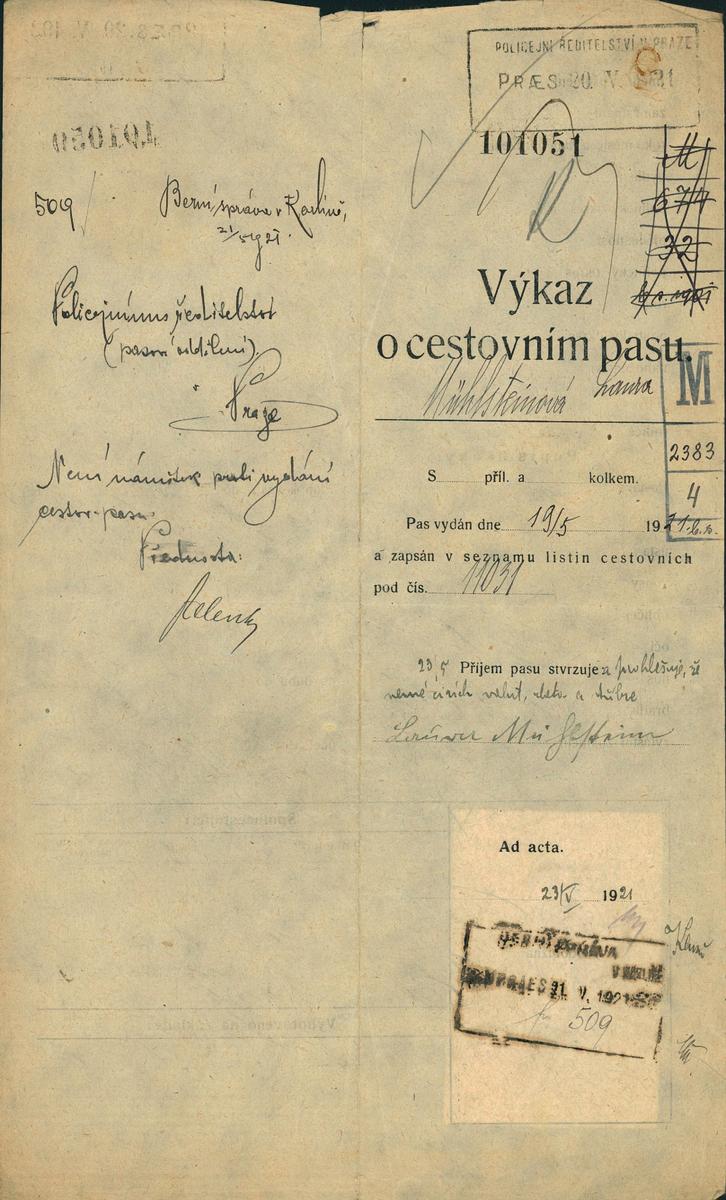 509
Berní správa v Karlíně,
21/5 1921.
Policejnímu ředitelství
(pasové oddělení)
Praze
Není námitek proti vydání
cestov. pasu.
Přednosta:
POLICEJNÍ ŘEDITELSTVÍ V PRAZE
PRÆS 20. V. 1921
101051
M
677
32
Výkaz
o cestovním pasu.
Mühlsteinová Laura
M
2383
4
S příl. a kolkem.
Pas vydán dne 19/5 1921
a zapsán v seznamu listin cestovních
pod čís. 11031
23/5 Příjem pasu stvrzuje a prohlašuje, že
nemá cizích valut, zlata a stříbra
Laura Mühlstein
Ad acta.
23/V 1921
BERNÍ SPRÁVA
V KARLÍNĚ
PRAES 21. V. 1921
509